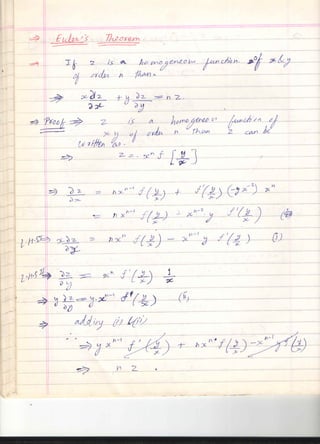 ⇒ Euler's Theorem
→ If z is a homogeneous function of x & y
of order n then
⇒ x ∂z/∂x + y ∂z/∂y = n z.
⇒ Proof ⇒ z is a homogeneous function of
x y of order n than z can be
written as.
⇒ z = xⁿ f [y/x]
⇒ ∂z/∂x = n xⁿ⁻¹ f(y/x) + f'(y/x) (-y x⁻²) xⁿ
= n xⁿ⁻¹ f(y/x) - xⁿ⁻² y f'(y/x)
x ∂z/∂x = n xⁿ f(y/x) - xⁿ⁻¹ y f'(y/x) (i)
∂z/∂y = xⁿ f'(y/x) 1/x
⇒ y ∂z/∂y = y.xⁿ⁻¹ f'(y/x)
⇒ adding (i) & (ii)
∴ ⇒ y xⁿ⁻¹ f'(y/x) + n xⁿ f(y/x) - xⁿ⁻¹ y f'(y/x)
⇒ n z .